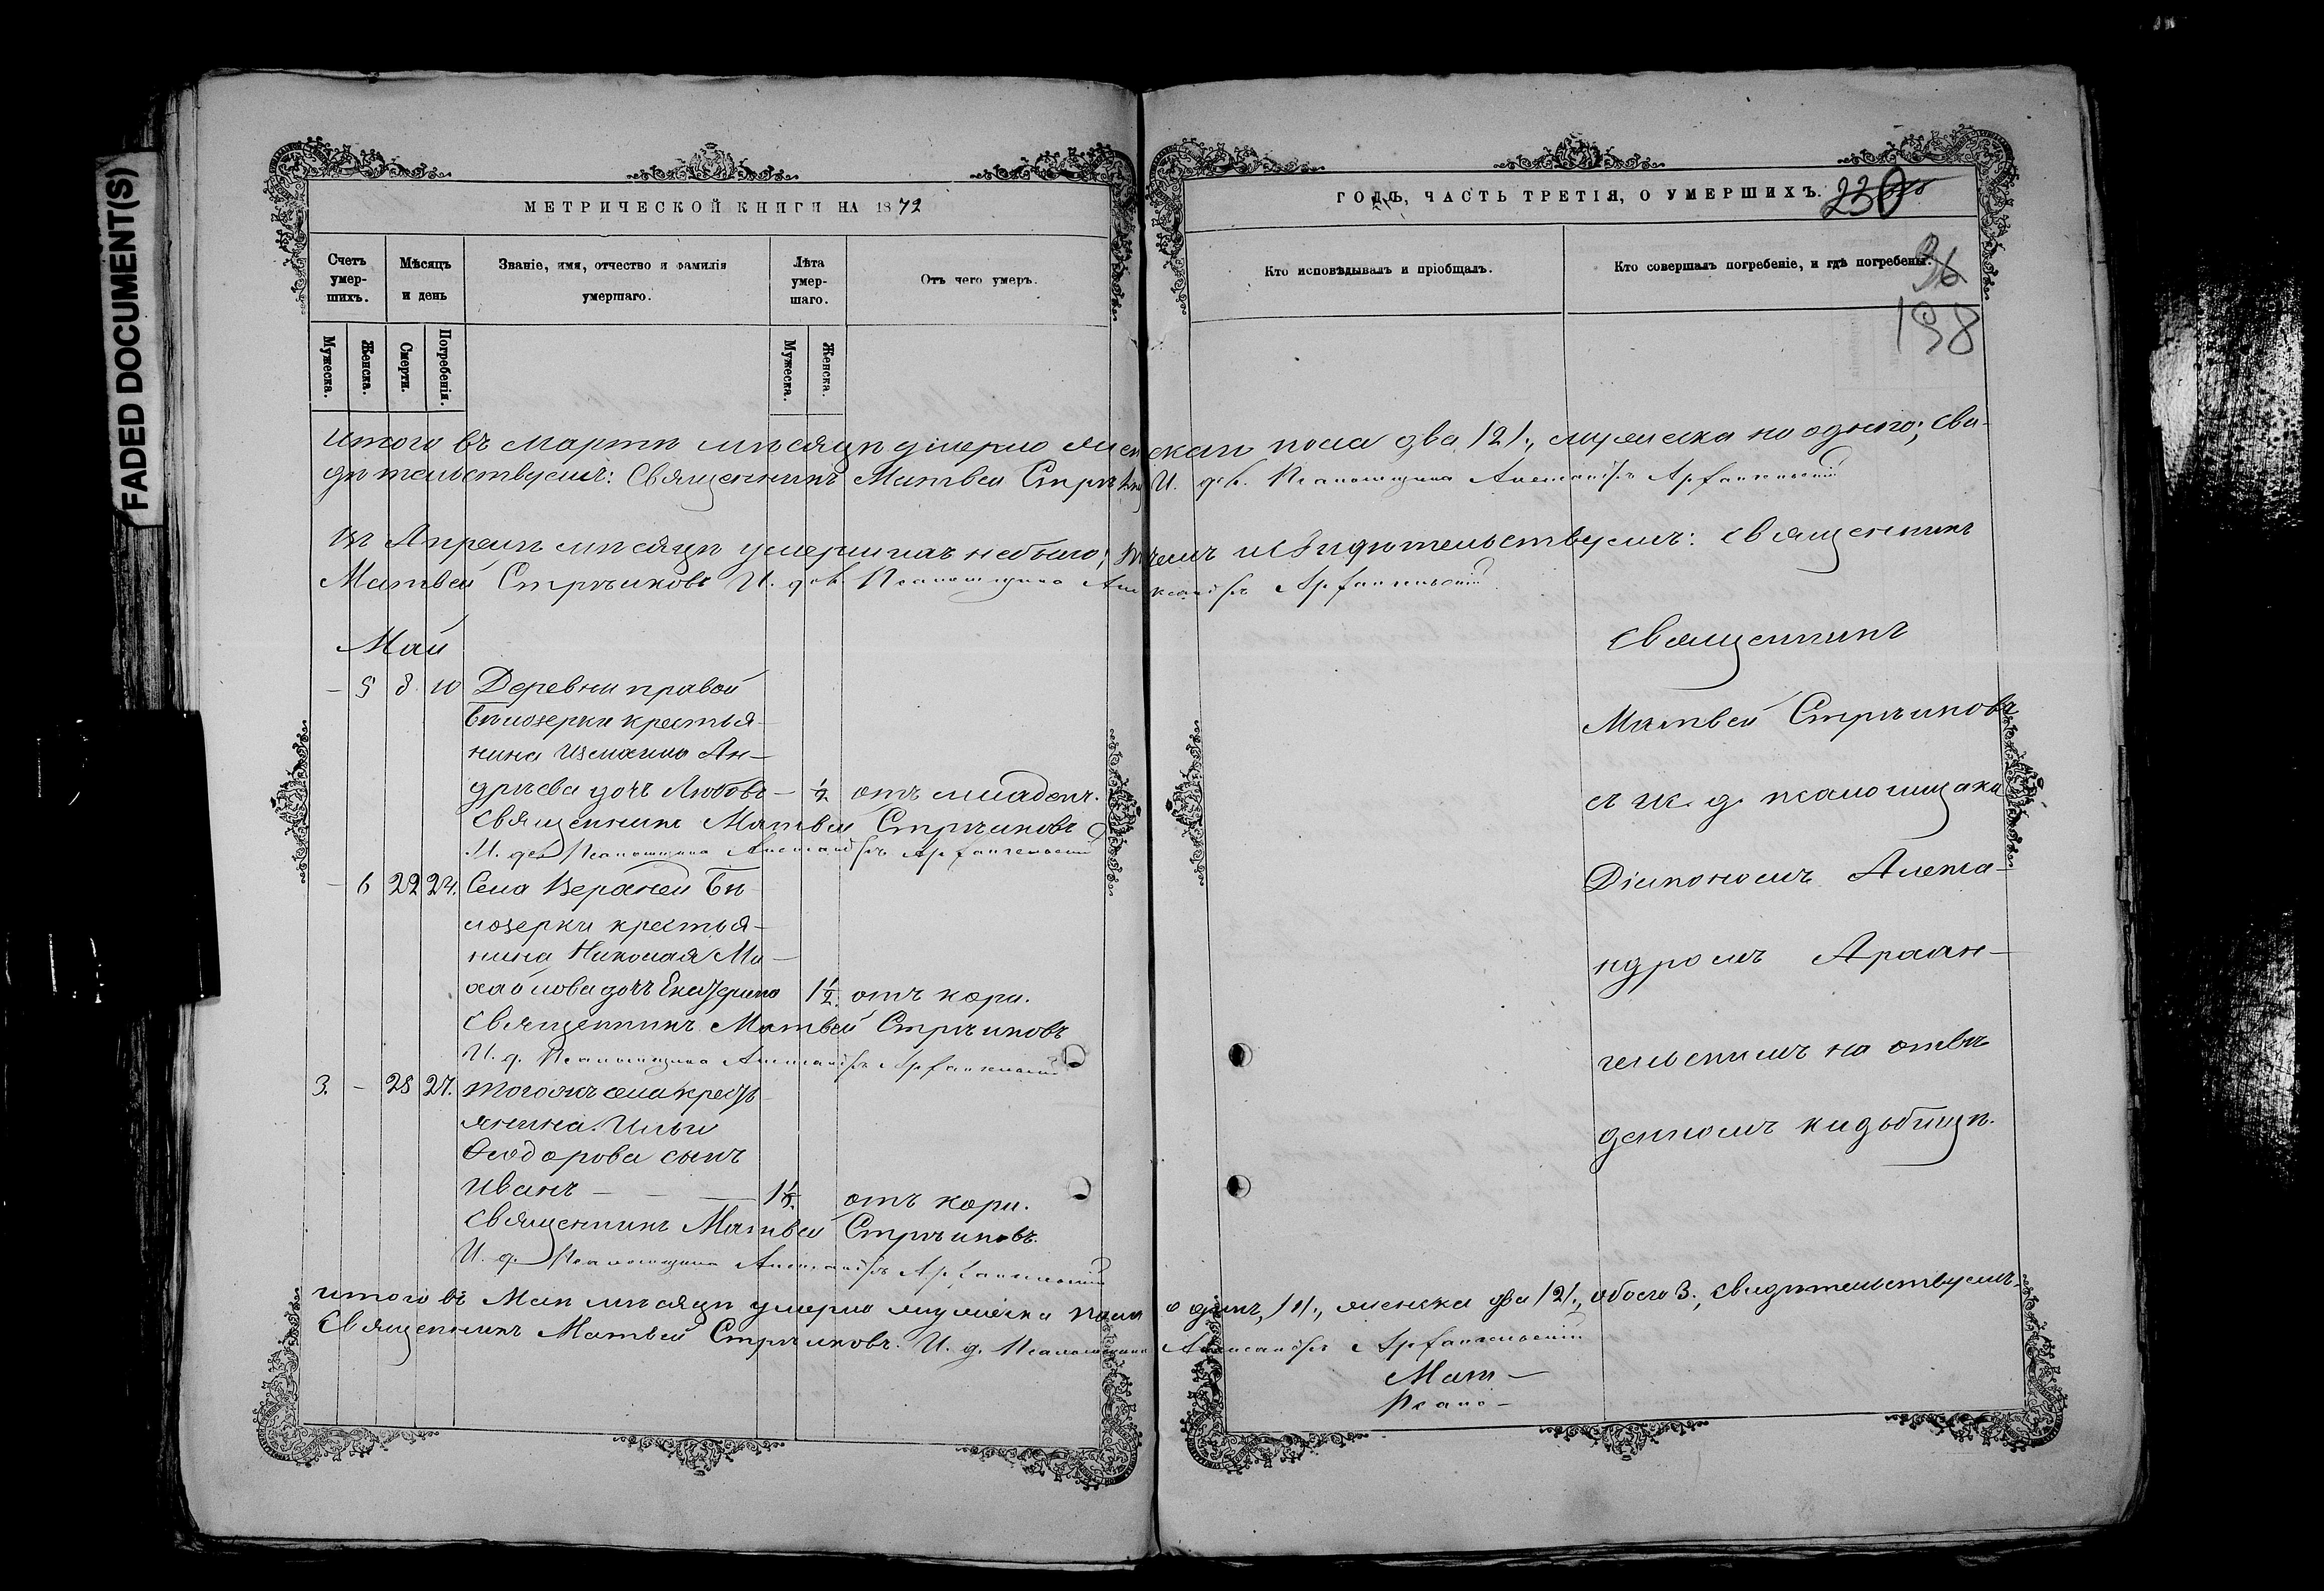 FADED DOCUMENT(S)
МЕТРИЧЕСКОЙ КНИГИ НА 1872
Счетъ умер-шихъ.
Мѣсяцъ и день
Званіе, имя, отчество и фамилія умершаго.
Лѣта умер-шаго.
Отъ чего умеръ.
Мужеска.
Женска.
Смерти.
Погребенія.
Мужеска.
Женска.
ГОДЪ, ЧАСТЬ ТРЕТІЯ, О УМЕРШИХЪ.
230
Кто исповѣдывалъ и пріобщалъ.
Кто совершалъ погребеніе, и гдѣ погребены.
36
198
Итого въ Мартѣ мѣсяцѣ умерло женскаго пола два /2/., мужеска ни одного; сви-
дѣтельствуемъ: Священникъ Матвей Стрѣлковъ И. д. Псаломщика Александръ Архангельскій
Въ Апрелѣ мѣсяцѣ умершихъ небыло; въ чемъ и свидѣтельствуемъ: Священникъ
Матвей Стрѣлковъ И. д. Псаломщика Александръ Архангельскій
Май
– 5 8 10 Деревни правой
Бѣлозерки крестья-
нина Измаила Ан-
дрѣева дочь Любовь – ½ отъ младенч.
Священникъ Матвей Стрѣлковъ
И. д. Псаломщика Александръ Архангельскій
– 6 22 24. Села Верхней Бѣ-
лозерки крестья-
нина Николая Ми-
хайлова дочь Екатерина 1½ отъ кори.
Священникъ Матвей Стрѣлковъ
И. д. Псаломщика Александръ Архангельскій
3. – 25 27. Тогожъ села крест-
янина Ильи
Ѳеодорова сынъ
Иванъ – – – отъ кори.
Священникъ Матвей Стрѣлковъ.
И. д. Псаломщика Александръ Архангельскій
Итого въ Маѣ мѣсяцѣ умерло мужеска пола одинъ, /1/., женска два /2/., обоего 3., свидѣтельствуемъ.
Священникъ Матвей Стрѣлковъ. И. д. Псаломщика Александръ Архангельскій
Мат –
Псало –
Священникъ
Матвей Стрѣлковъ
съ и. д. псаломщика
Діакономъ Алекса-
ндромъ Архан-
гельскимъ на отве-
денномъ кладбищѣ.